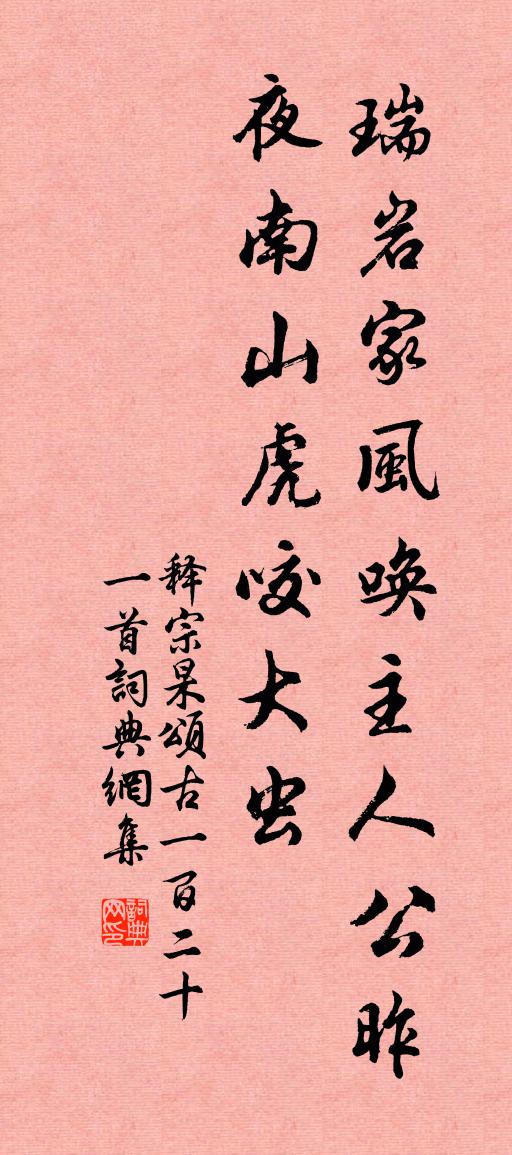 瑞岩家風唤主人公昨
夜南山虎咬大虫
释宗杲頌古一百二十
一首詞典網集
詞典
网印